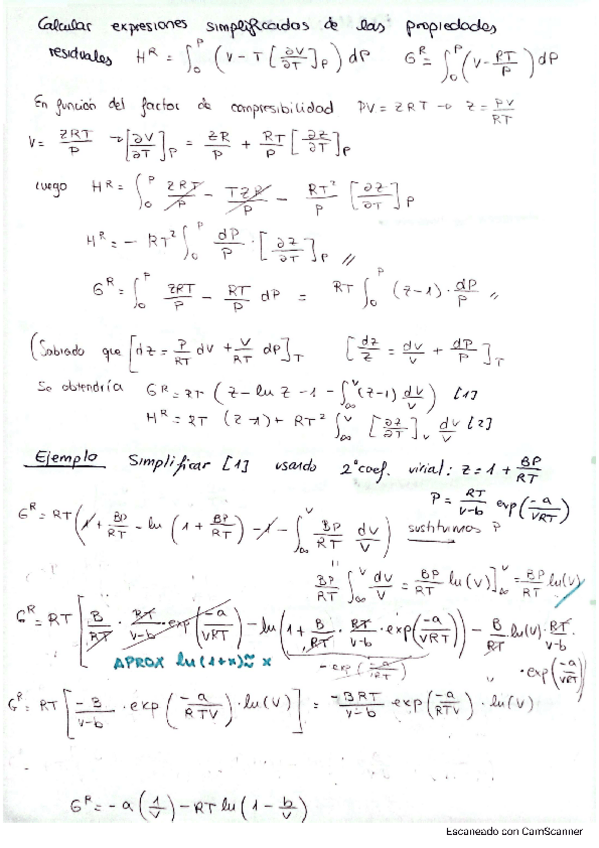 Calcular expresiones simplificadas de las propiedades
residuales H^R = ∫_0^P (V - T [∂V/∂T]_P) dP   G^R = ∫_0^P (V - RT/P) dP
En función del factor de compresibilidad PV = ZRT → Z = PV/RT
V = ZRT/P → [∂V/∂T]_P = ZR/P + RT/P [∂Z/∂T]_P
luego H^R = ∫_0^P ZRT/P - TZR/P - RT²/P [∂Z/∂T]_P
H^R = - RT² ∫_0^P dP/P · [∂Z/∂T]_P //
G^R = ∫_0^P ZRT/P - RT/P dP = RT ∫_0^P (Z-1) · dP/P //
(Sabiendo que [dZ = P/RT dV + V/RT dP]_T   [dZ/Z = dV/V + dP/P]_T
Se obtendría G^R = RT (Z - ln Z - 1 - ∫_∞^V (Z-1) dV/V) [1]
H^R = RT (Z-1) + RT² ∫_∞^V [∂Z/∂T]_V dV/V [2]
Ejemplo Simplificar [1] usando 2º coef. virial: Z = 1 + BP/RT
P = RT/V-b exp(-a/VRT)
G^R = RT (1 + BP/RT - ln (1 + BP/RT) - 1 - ∫_∞^V BP/RT dV/V) sustituimos P
BP/RT ∫_∞^V dV/V = BP/RT ln(V)]_∞^V = BP/RT ln(V)
G^R = RT [B/RT · RT/V-b · exp(-a/VRT) - ln(1 + B/RT · RT/V-b · exp(-a/VRT)) - B/RT ln(V) · RT/V-b
· exp(-a/VRT)
APROX ln(1+x) ≈ x
G^R = RT [-B/V-b · exp(-a/RTV) · ln(V)] = -BRT/V-b exp(-a/RTV) · ln(V)
G^R = -a (1/V) - RT ln(1 - b/V)
Escaneado con CamScanner